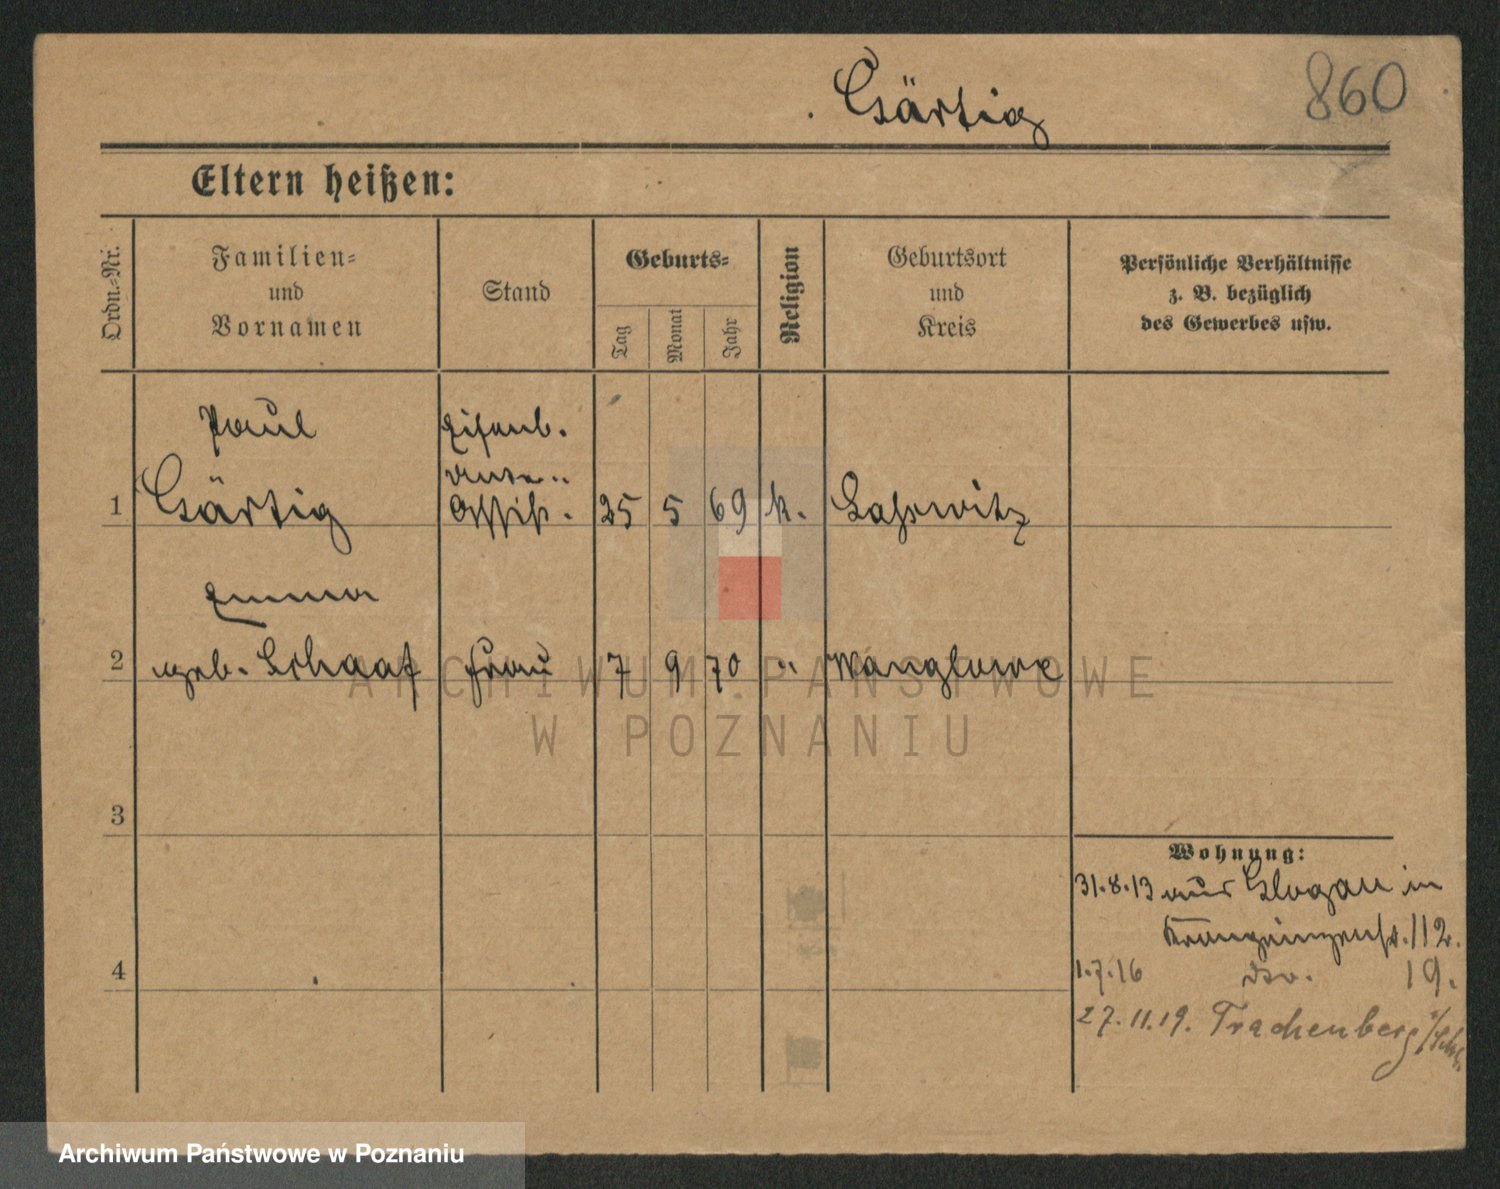 Gärtig
860
Eltern heißen:
Ordn.-Nr.
Familien-
und
Vornamen
Stand
Geburts-
Tag
Monat
Jahr
Religion
Geburtsort
und
Kreis
Persönliche Verhältnisse
z. B. bezüglich
des Gewerbes usw.
Paul
Eisenb.
1
Gärtig
Assist.
25
5
69
k.
Lasswitz
Emma
2
geb. Schaaf
Frau
7
9
70
"
ARCHIWUM PAŃSTWOWE
W POZNANIU
3
4
Wohnung:
31.8.13 aus Glogau in
Kronprinzenstr. 112.
1.7.16 do. 19.
27.11.19. Trachenberg i/Schl.
Archiwum Państwowe w Poznaniu